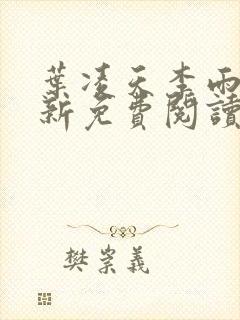 葉凌天李雨
新免費閱讀
樊崇義